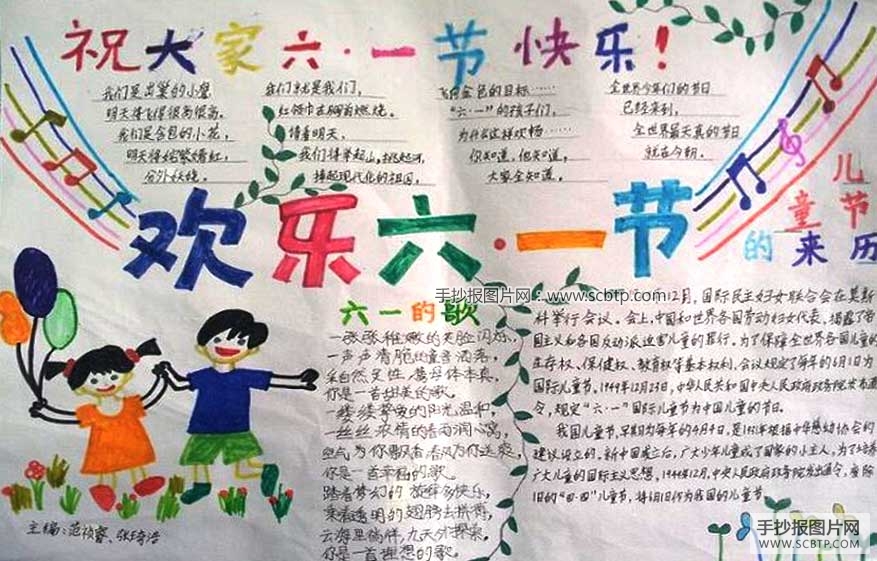 祝大家六·一节快乐！
我们是出巢的小鹰
明天将飞得很高很高。
我们是含苞的小花，
明天将姹紫嫣红，
分外妖娆。
我们就是我们，
红领巾在胸前燃烧。
请看明天，
我们将举起山，挑起河，
撑起现代化的祖国，
飞向金色的目标……
“六·一”的孩子们，
为什么这样欢畅……
你知道，他知道，
大家全知道。
全世界少年们的节日
已经来到，
全世界最天真的节日
就在今朝。
欢乐六·一节
儿童节的来历
手抄报图片网：www.scbtp.com
六一的歌
一张张稚嫩的笑脸闪烁，
一声声清脆的童音洒落，
你是一首甜美的歌。
一缕缕挚爱的阳光温和，
一丝丝浓情的春雨润心窝，
你是一首幸福的歌。
踏着梦幻的旋律多快乐，
乘着透明的翅膀去拼搏，
云海里徜徉，九天外探索，
你是一首理想的歌。
12月，国际民主妇女联合会在莫斯
科举行会议。会上，中国和世界各国劳动妇女代表，揭露了帝
国主义和各国反动派迫害儿童的罪行。为了保障全世界各国儿童的
生存权、保健权、教育权等基本权利，会议规定了每年的6月1日为
国际儿童节。1949年12月23日，中华人民共和国中央人民政府政务院发布通
令，规定“六·一”国际儿童节为中国儿童的节日。
我国儿童节，早期为每年的4月4日，是1931年根据中华慈幼协会的
建议设立的。新中国成立后，广大少年儿童成了国家的小主人，为了培养
广大儿童的国际主义思想，1949年12月，中央人民政府政务院发出通令，废除
旧的“四·四”儿童节，将6月1日作为我国的儿童节
主编：
手抄报图片网
WWW.SCBTP.COM